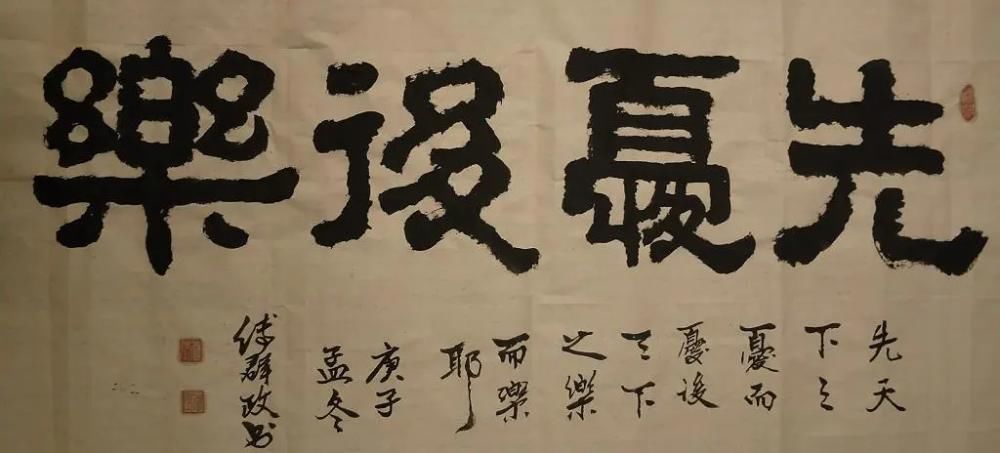 先憂後樂
先天
下之
憂而
憂後
天下
之樂
而樂
耶
庚子
孟冬
群政书